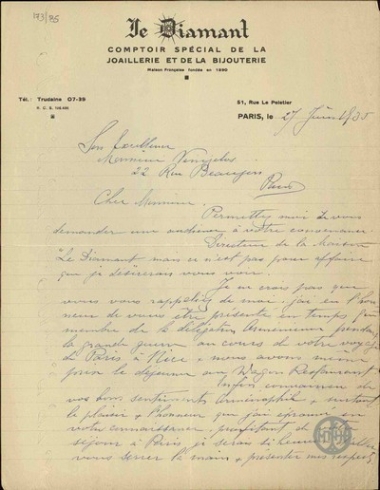 173/35
Le Diamant
COMPTOIR SPÉCIAL DE LA
JOAILLERIE ET DE LA BIJOUTERIE
Maison Française fondée en 1890
Tél.: Trudaine 07-39
51, Rue Le Peletier
PARIS, le 27 1935
Son
Monsieur Venizelos
22 Rue Beaujon
Paris
Cher Monsieur
Permettez moi de vous
demander une audience à votre convenance
Directeur de la Maison
"Le Diamant" mais ce n'est pas pour affaire
que je désirerais vous voir.
Je ne crois pas que
vous vous rappelez de moi. j'ai eu l'hon
neur de vous être présenté en temps que
membre de la délégation Arménienne pendant
la grande guerre au cours de votre voyage
de Paris à Nice + nous avons même
pris le déjeuner au Wagon Restaurant
connaissant
vos bons sentiments Arménophiles + surtout
le plaisir + l'honneur que j'ai éprouvé en
votre connaissance, profitant de
séjour à Paris je serais si heureux
vous serrer la main + présenter mes respects